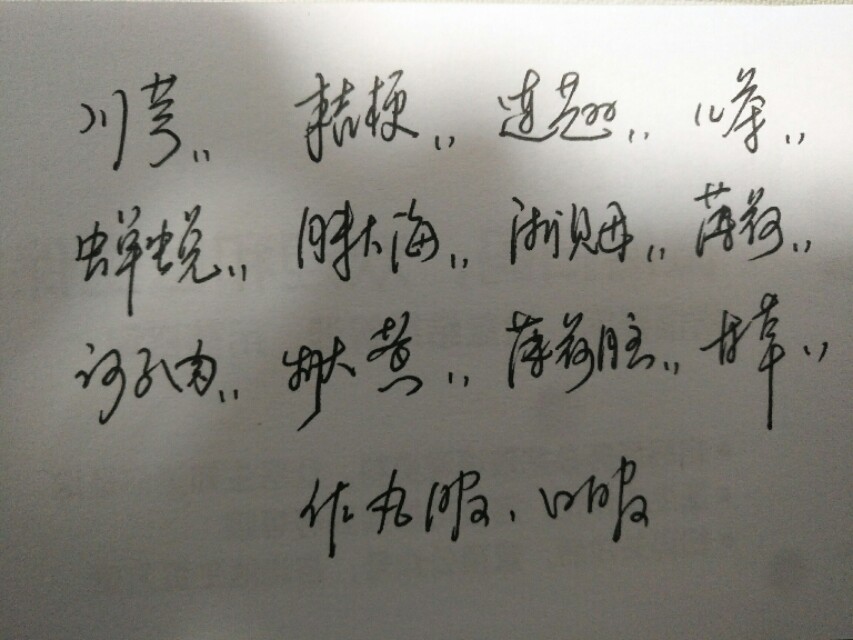 川芎,, 桔梗,, 连翘,, 儿茶,,
蝉蜕,, 胖大海,, 浙贝母,, 薄荷,,
诃子肉,, 大黄,, 薄荷脑,, 甘草,,
作丸服、口服